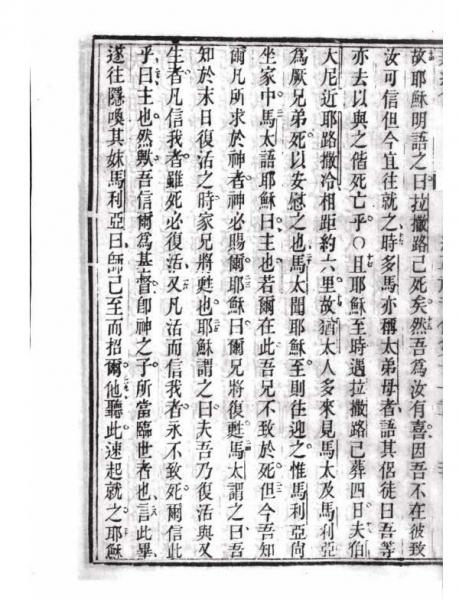 故耶穌明語之曰拉撒路已死矣然吾爲汝有喜因吾不在彼致
汝可信但今宜往就之時多馬亦稱太弟母者語其侶徒曰吾等
亦去以與之偕死亡乎〇且耶穌至時遇拉撒路已葬四日夫伯
大尼近耶路撒冷相距約六里故猶太人多來見馬太及馬利亞
爲厥兄弟死以安慰之也馬太聞耶穌至則往迎之惟馬利亞尚
坐家中馬太語耶穌曰主也若爾在此吾兄不致於死但今吾知
爾凡所求於神者神必賜爾耶穌曰爾兄將復甦馬太謂之曰吾
知於末日復活之時家兄將甦也耶穌謂之曰夫吾乃復活與又
生者凡信我者雖死必復活又凡活而信我者永不致死爾信此
乎曰主也然歟吾信爾爲基督卽神之子所當臨世者也言此畢
遂往隱喚其妹馬利亞曰師已至而招爾他聽此速起就之耶穌